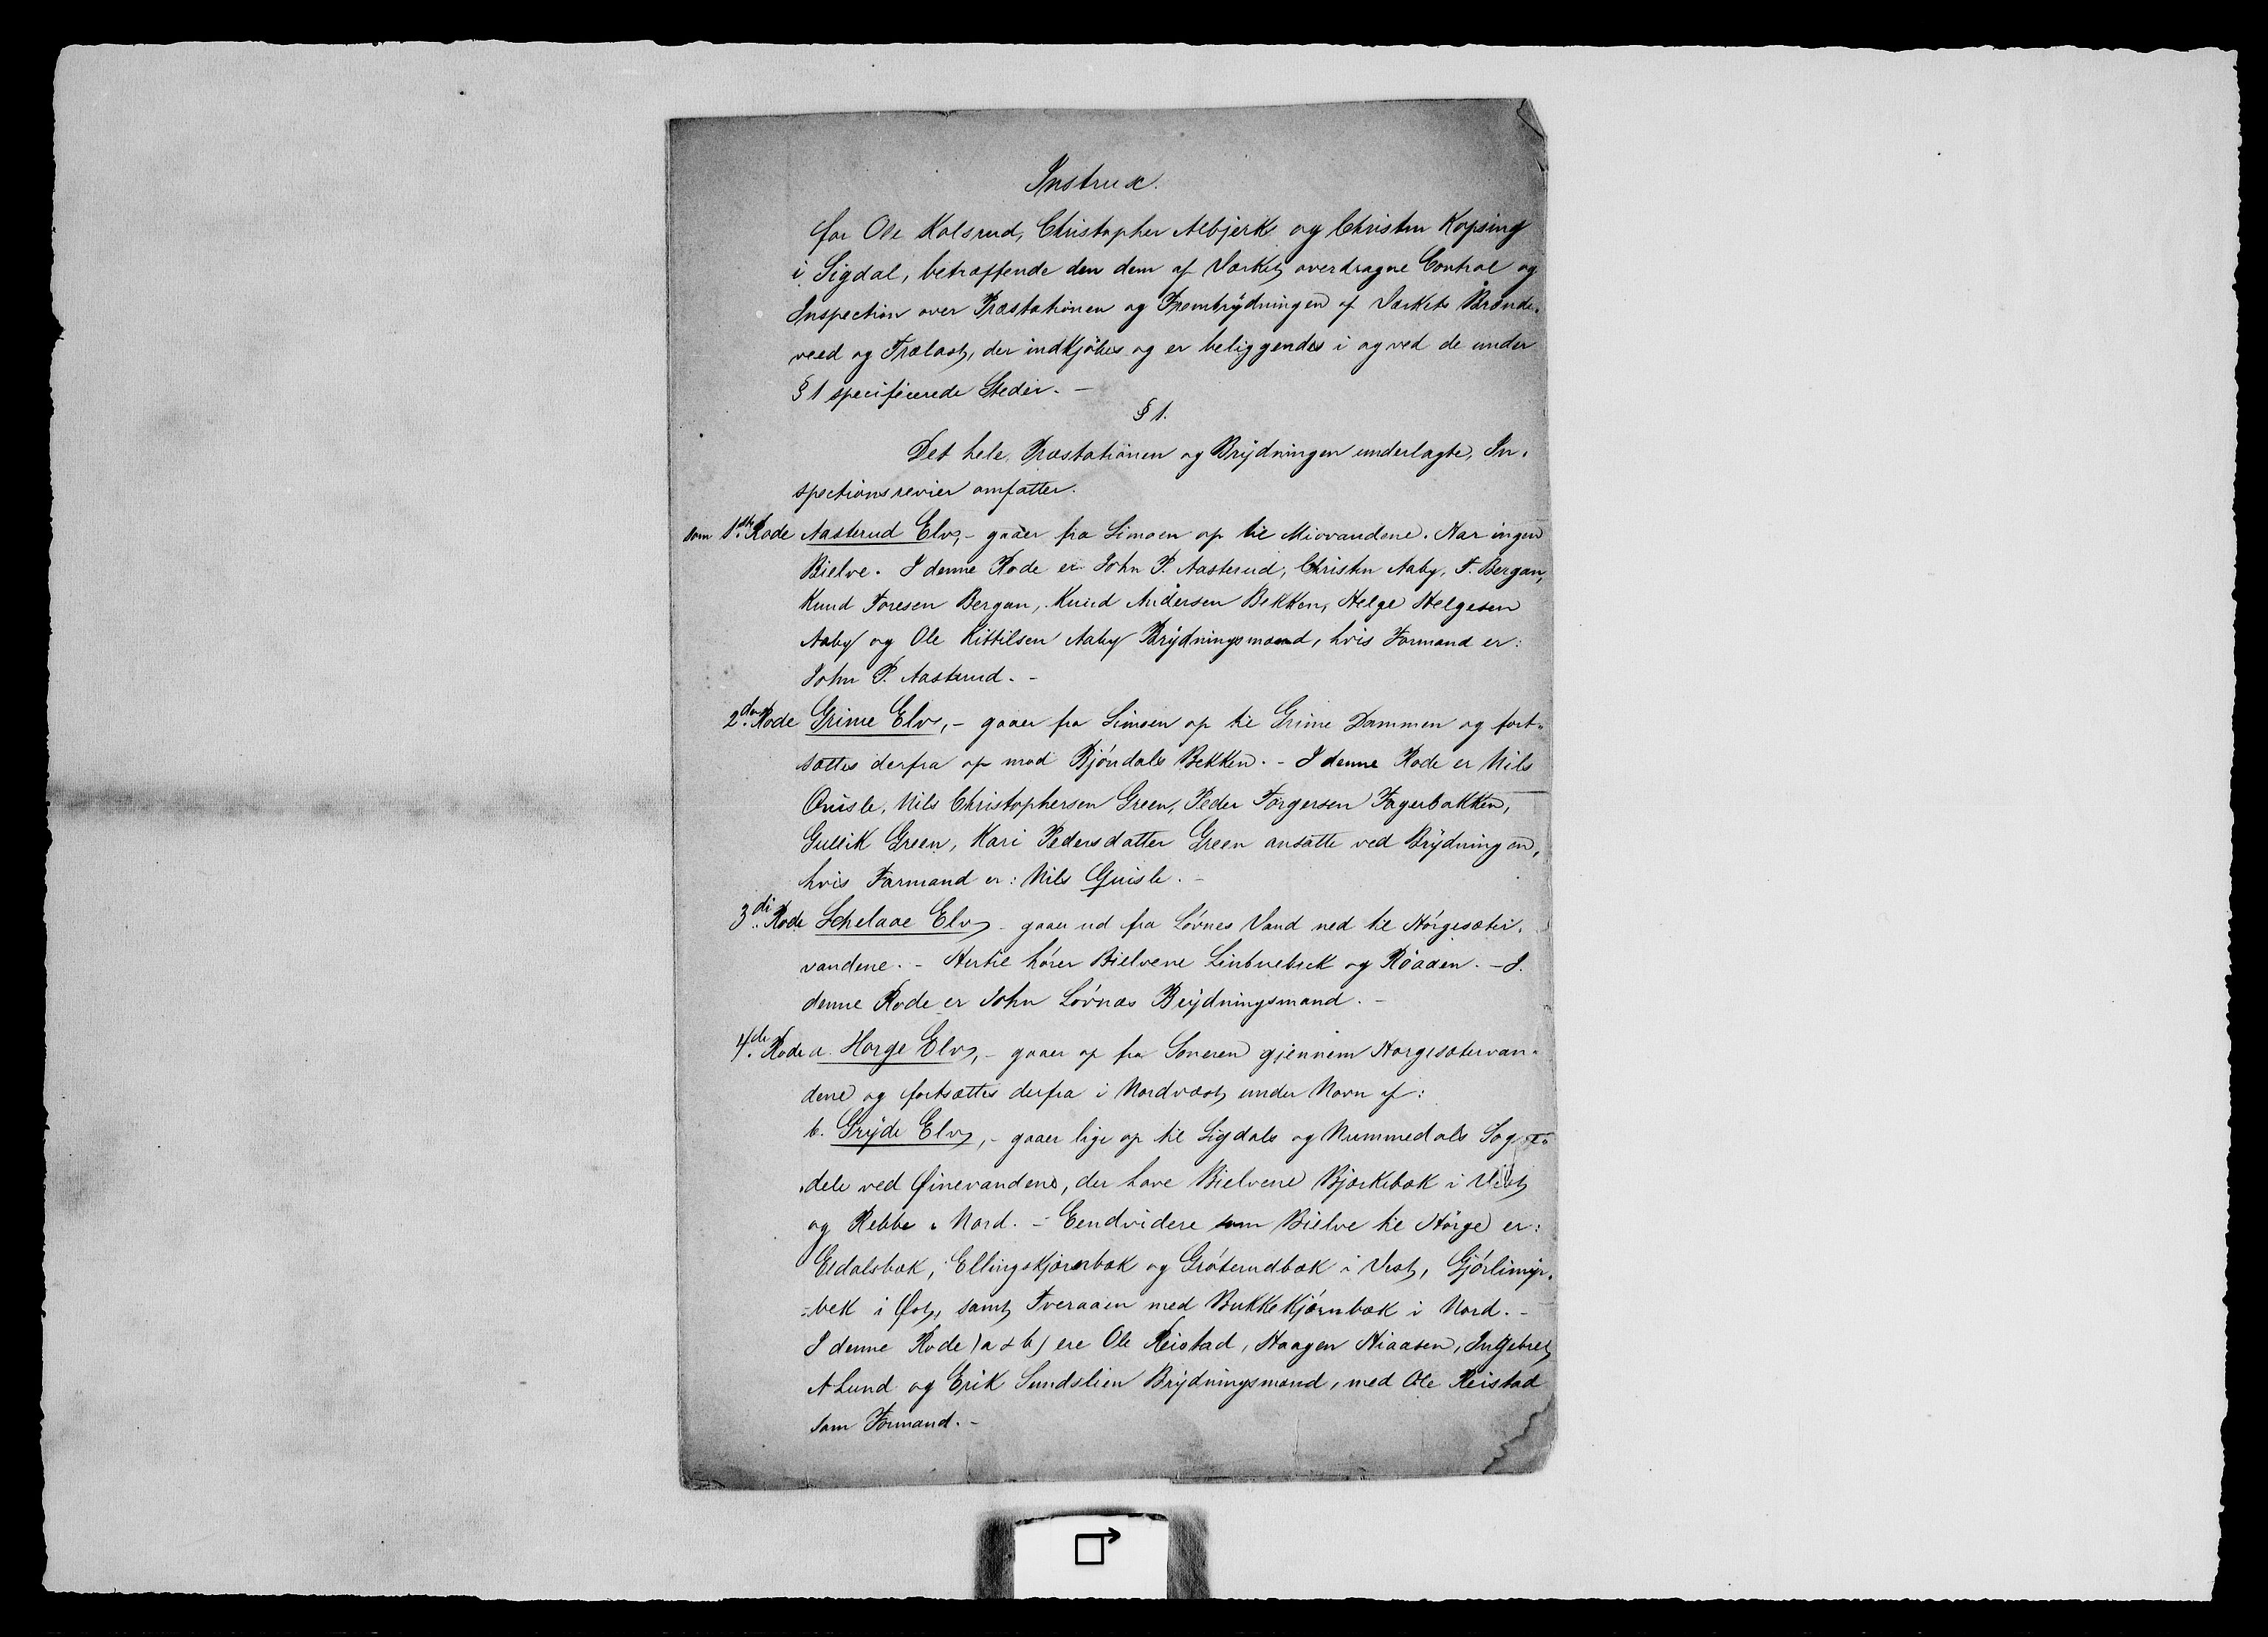 Instrux.
for Ole Kolsrud, Christopher Albjerk og Christen Kopsing
i Sigdal, betræffende den dem af Værket overdragne Control og
Inspection over Præstationen og Frembrydningen af Værkets Brænde-
veed og Trælast, der indkjøbes og er beliggendes i og ved de under
§ 1 specificerede Steder. -
§ 1.
Det hele, Præstationen og Brydningen underlagte, In-
spectionsrevier omfatter.
som 1ste Rode Aasterud Elv, - gaaer fra Simoen op til Miovandene. Har ingen
Bielve. I denne Rode er John P. Aasterud, Christen Aaby, T. Bergan,
Knud Toresen Bergan, Knud Andersen Bekken, Helge Helgesen
Aaby og Ole Kittilsen Aaby Brydningsmænd, hvis Formand er:
John P. Aasterud. -
2den Rode Grime Elv, - gaaer fra Simoen op til Grime Dammen og fort-
sættes derfra op mod Bjøndals Bekken. - I denne Rode er Nils
Quisle, Nils Christophersen Green, Peder Torgersen Fagerbakken,
Gullik Green, Kari Pedersdatter Green ansatte ved Brydningen,
hvis Formand er: Nils Quisle. -
3die Rode Schelaae Elv, - gaaer ud fra Løvnes Vand ned til Hørgesæter-
vandene. - Hertil hører Bielvene og Røaaen. - I
denne Rode er John Løvnæs Brydningsmand. -
4de Rode a. Horge Elv, - gaaer op fra Soneren gjennem Horgesætervan-
dene og fortsættes derfra i Nordvæst under Navn af:
b. Gryde Elv, - gaaer lige op til Sigdals og Nummedals Sogne-
dele ved Øinevandene, der have Bielvene Bjørkebæk i Vest
og Rebbe i Nord. - Eendvidere som Bielve til Hørge er:
Eidalsbæk, Ellingskjørnbæk og Grøterudbæk i Vest, Gjørlimyr-
-bek i Øst, samt Tveraaen med Bukkekjørnbæk i Nord. -
I denne Rode (a & b) ere Ole Reistad, Haagen Hiaasen, Ingebret
A Lund og Erik Sundslien Brydningsmænd, med Ole Reistad
som Formand. -